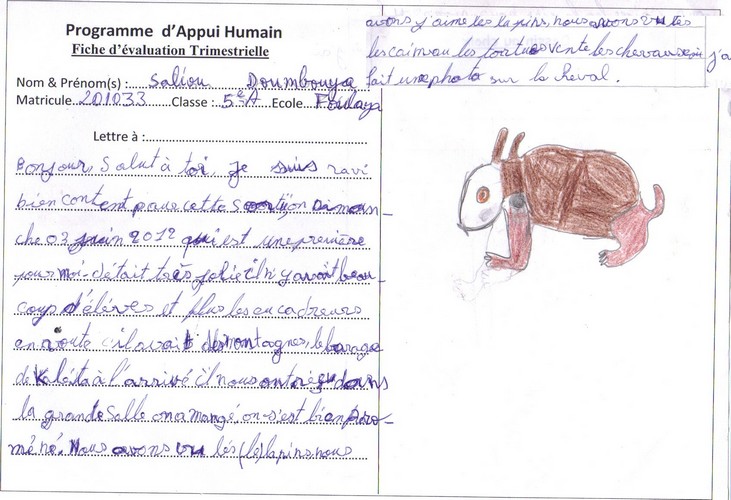 Programme d'Appui Humain
Fiche d'évaluation Trimestrielle
Nom & Prénom(s) : Saliou Doumbouya
Matricule 201033 Classe : 5e A Ecole Foulaya
Lettre à :
Bonjour, Salut à toi, je suis ravi
bien content pour cette sortion Diman-
che 03 juin 2012 qui est une première
pour moi. c'était très jolie il n'y avait beau-
coup d'éléves et plus les encadreurs
en route il avait des montagnes, le barage
de Kaleta à l'arrivé il nous ont reçu dans
la grande Salle on a mangé, on s'est bien pro-
mé né. Nous avons vu lés (le) lapins, nous
avons j'aime les lapins, nous avons vu les
les caimau les tortues vente les chevaux j'a
fait une photo sur la cheval.